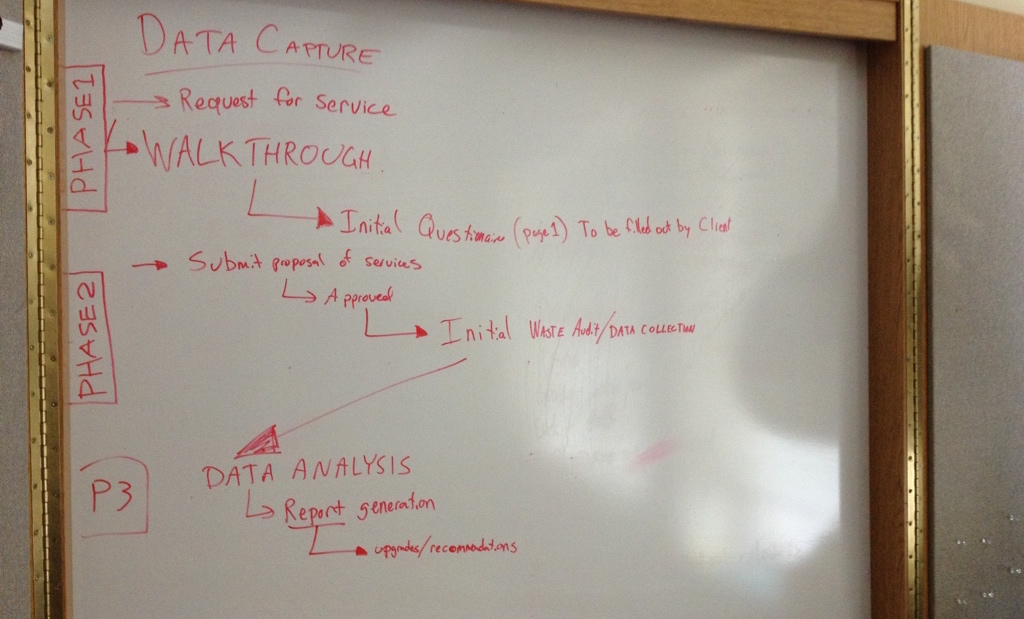 DATA CAPTURE
PHASE 1
Request for service
WALKTHROUGH
Initial Questionaire (page 1) To be filled out by Client
PHASE 2
Submit proposal of services
Approved
Initial WASTE Audit/DATA COLLECTION
P3
DATA ANALYSIS
Report generation
upgrades/recommendations